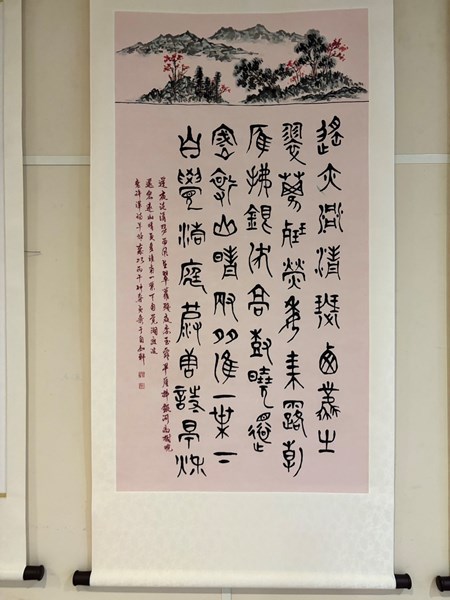 遙夜汎清瑟西風生
翠蘿殘螢委玉露早
雁拂銀河高樹曉還
密遠山晴更多淮一葉下
自覺洞庭波唐詩早秋
遙夜泛清瑟西風生翠蘿殘螢委玉露早雁拂銀河高樹曉
還密遠山晴更多淮南一葉下自覺洞庭波
唐許渾詩早秋